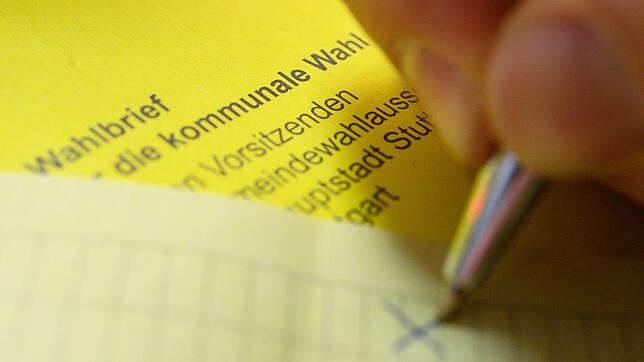 Wahlbrief
die kommunale Wahl
Vorsitzenden
meindewahlauss
uptstadt Stut
gart